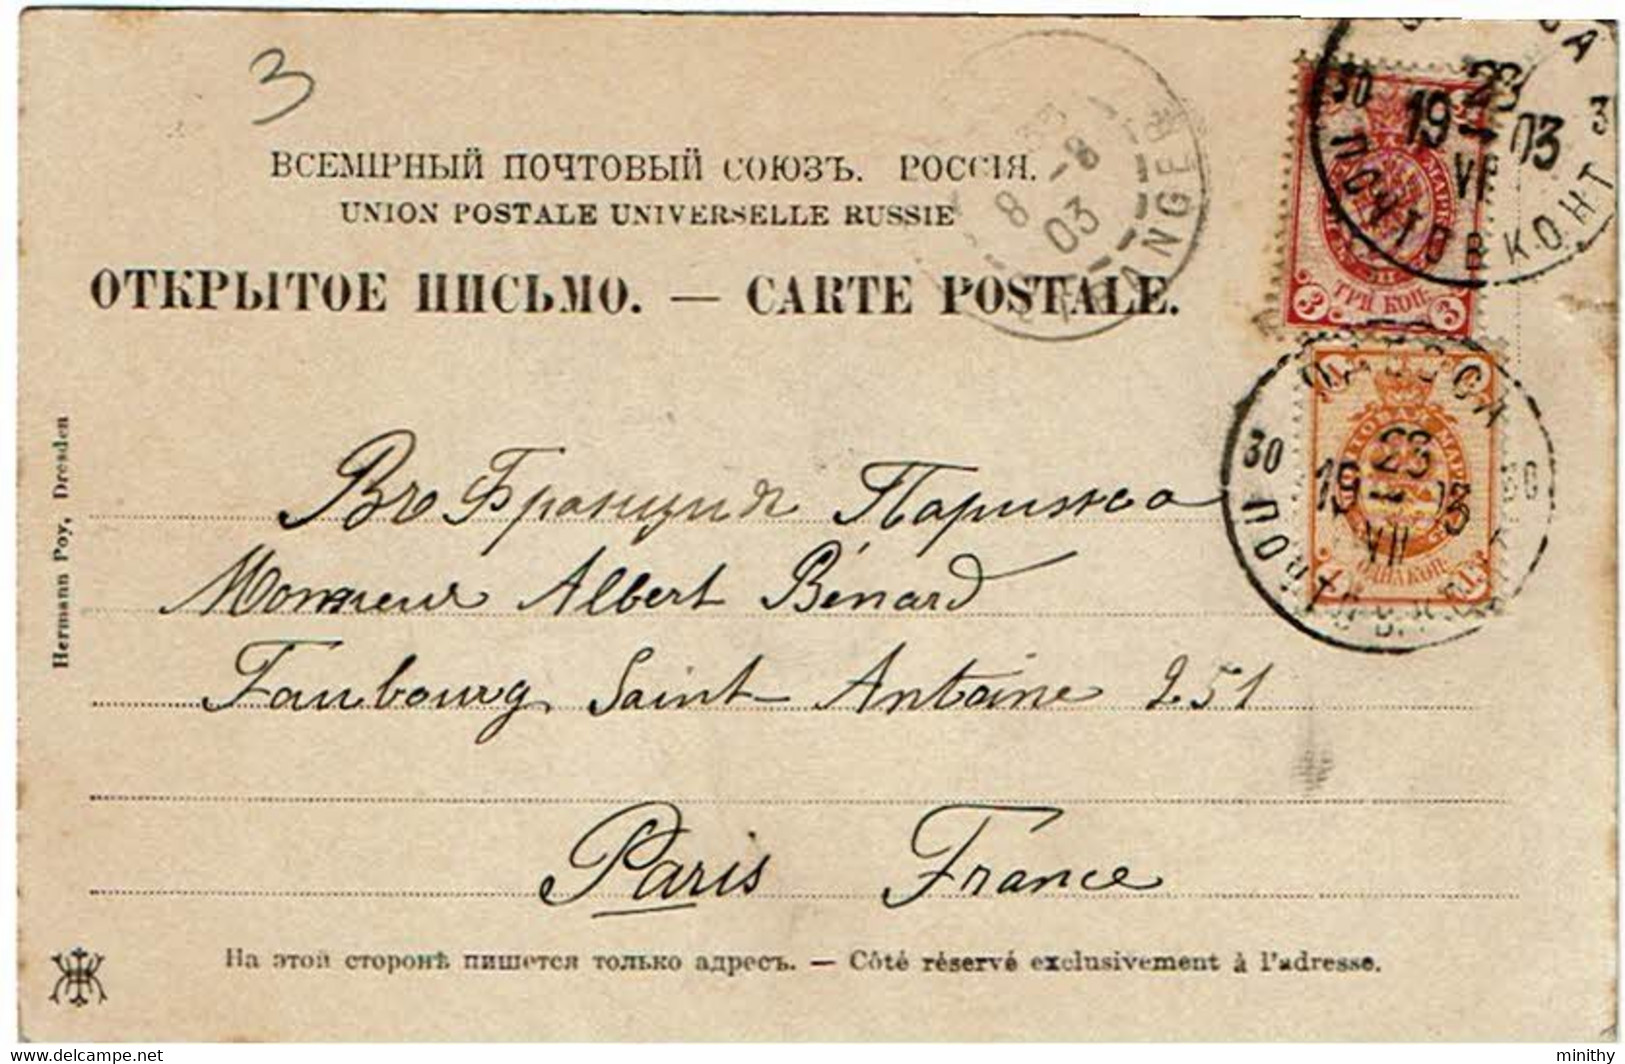 3
ВСЕМІРНЫЙ ПОЧТОВЫЙ СОЮЗЪ. РОССІЯ.
UNION POSTALE UNIVERSELLE RUSSIE
ОТКРЫТОЕ ПИСЬМО. — CARTE POSTALE.
8 -8
03
ETRANGER
30 23 3
19 - 03
VII
ПОЧТОВ. КОНТ
3 ТРИ КОП. 3
ОДЕССА
30 23 30
19 - 03
VII
1 ОДНА КОП. 1
Hermann Poy, Dresden
Въ Францiя Парижъ
Monsieur Albert Bénard
Faubourg Saint-Antoine 251
Paris France
На этой сторонѣ пишется только адресъ. — Côté réservé exclusivement à l'adresse.
delcampe.net
minithy